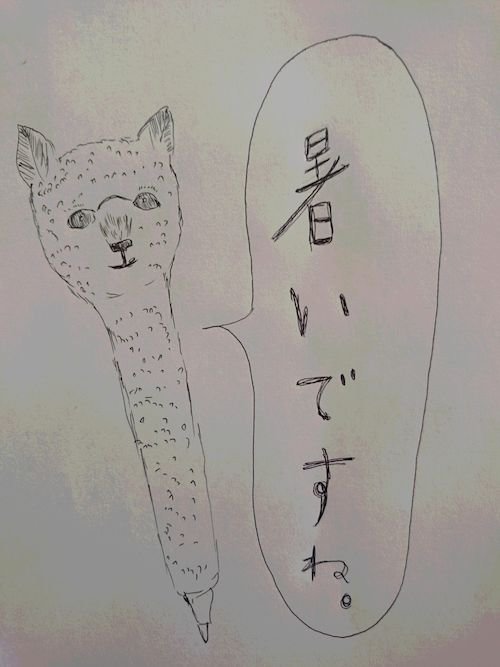 暑いですね。